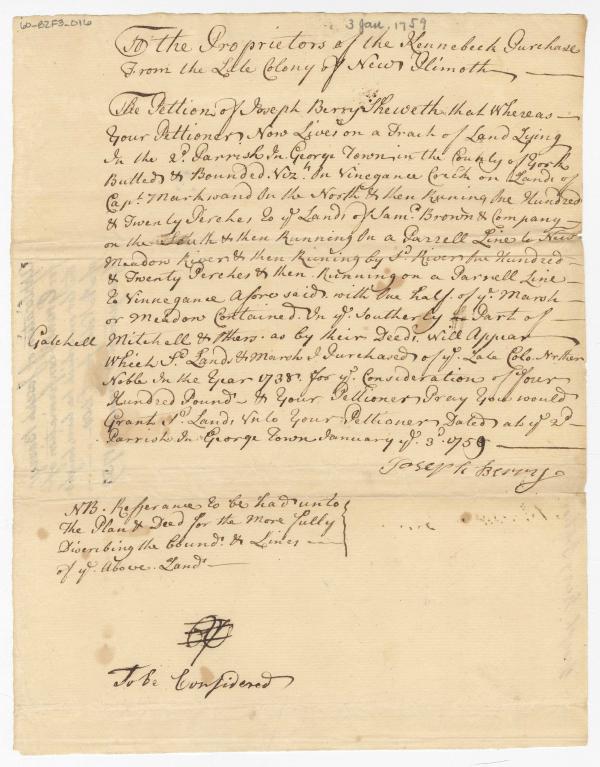 60-82F3-016
3 Jan. 1759
To the Proprietors of the Kennebeck Purchase
From the Late Colony of New Plimoth
The Petition of Joseph Berry Sheweth that Whereas
Your Pettioner Now Lives on a Track of Land Lying
In the 2d. Parrish In George Town in the County of York
Butted & Bounded. Vizt. On Vinegance Creek on Lands of
Capt. Markwand On the North & then Runing One Hundred
& Twenty Perches to ye Lands of Saml. Brown & Company
on the South & then Running On a Parrell Line to New
Meadow River & then Runing by Sd. River One Hundred
& Twenty Perches & then Running on a Parrell Line
To Vinnegance Aforesaid with One half of ye. Marsh
or Meadow Contained In ye. Southerly Part of
Gatchell Mitchell & others. as by their Deeds Will Appear
Which Sd. Land & Marsh I Purchased of ye. Late Colo.
Noble In the Year 1738. for ye. Consideration of Four
Hundred Pound & Your Pettioner Pray You would
Grant Sd. Lands Unto Your Pettioner Dated at ye 2d.
Parrish In George Town January ye. 3d. 1759
Joseph Berry
NB. Refferance to be had unto
The Plan & Deed for the More fully
Discribing the Bounds & Lines
of ye. Above Land
To be Considered